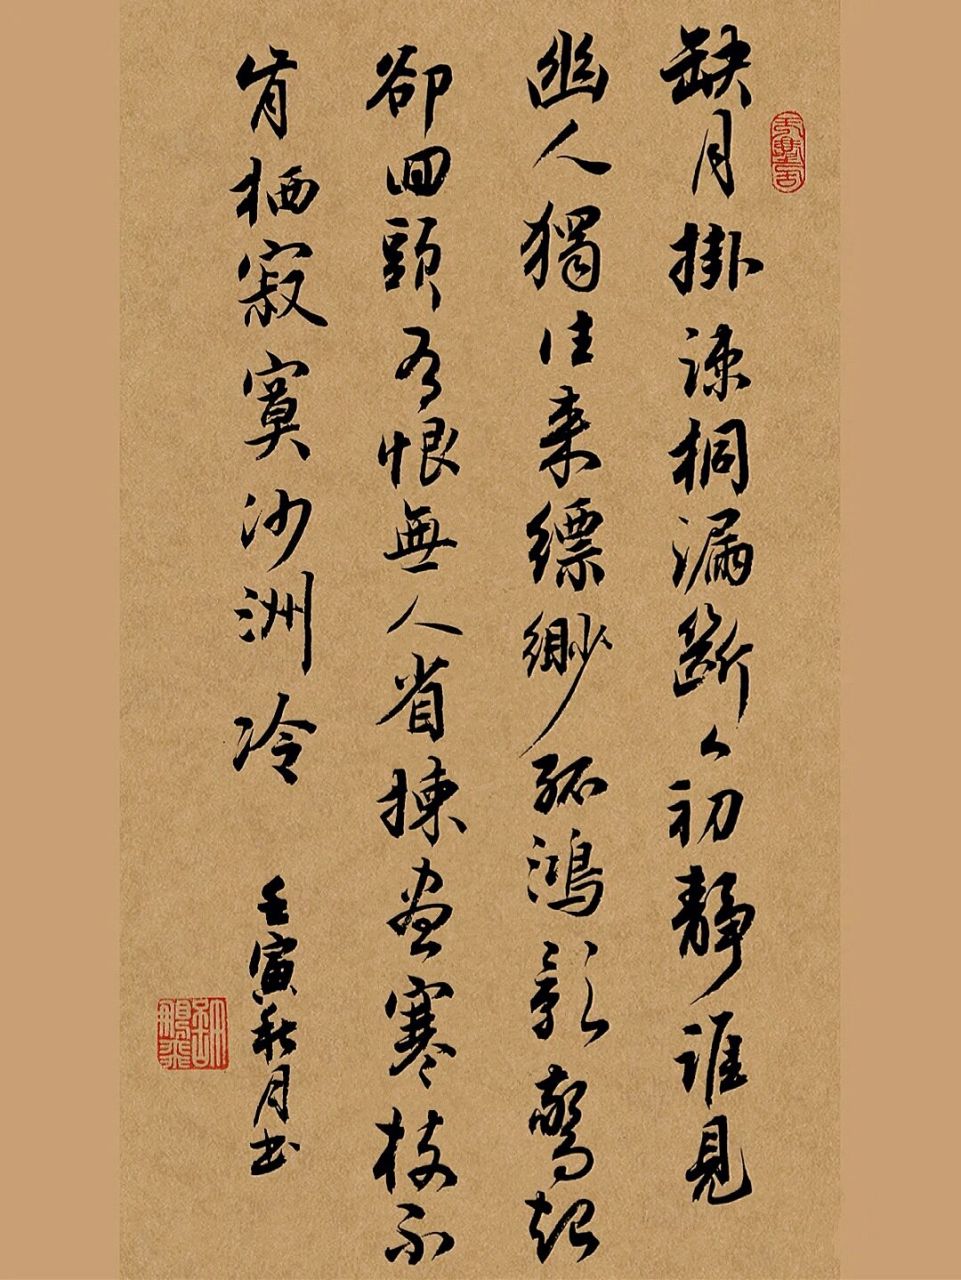 缺月掛疎桐漏斷々初靜誰見
幽人獨往来縹緲孤鴻影驚起
卻回頭有恨無人省揀盡寒枝不
肯栖寂寞沙洲冷
壬寅秋月书